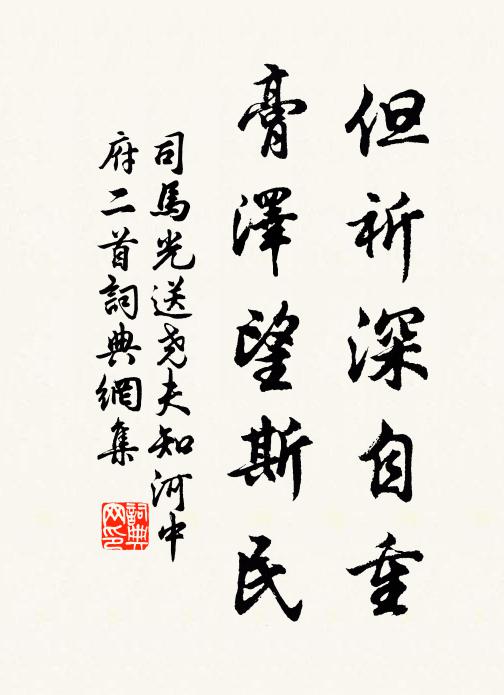 但祈深自重
膏澤望斯民
司馬光送堯夫知河中
府二首詞典網集
詞典
网印